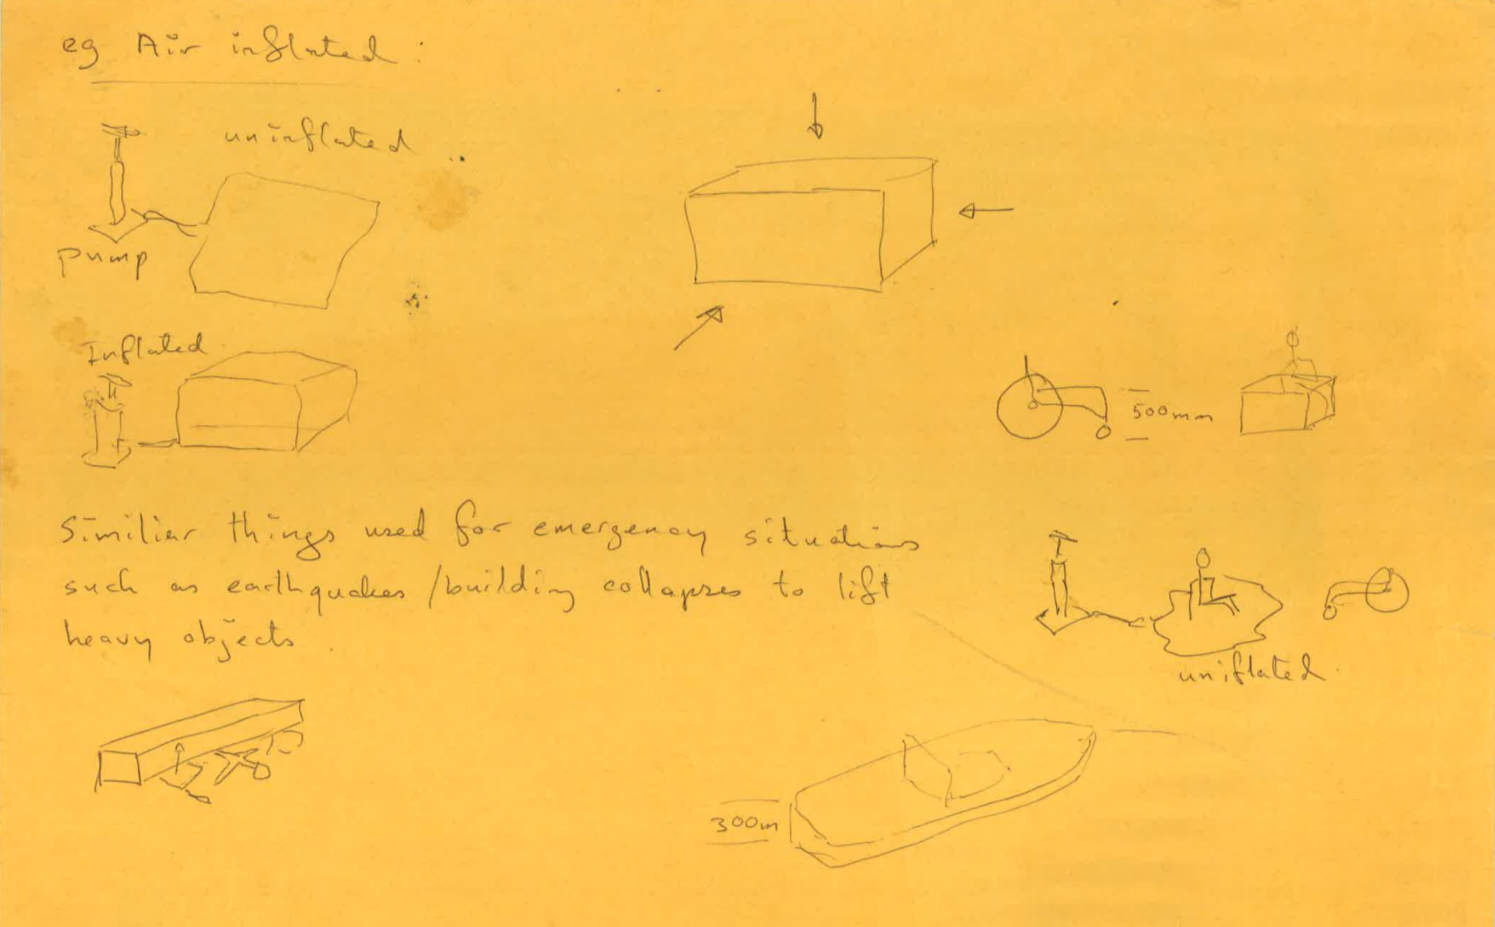 eg Air inflated :
uninflated
pump
Inflated
500mm
Similier things used for emergency situations
such as earthquakes /building collapses to lift
heavy objects.
uniflated.
300m